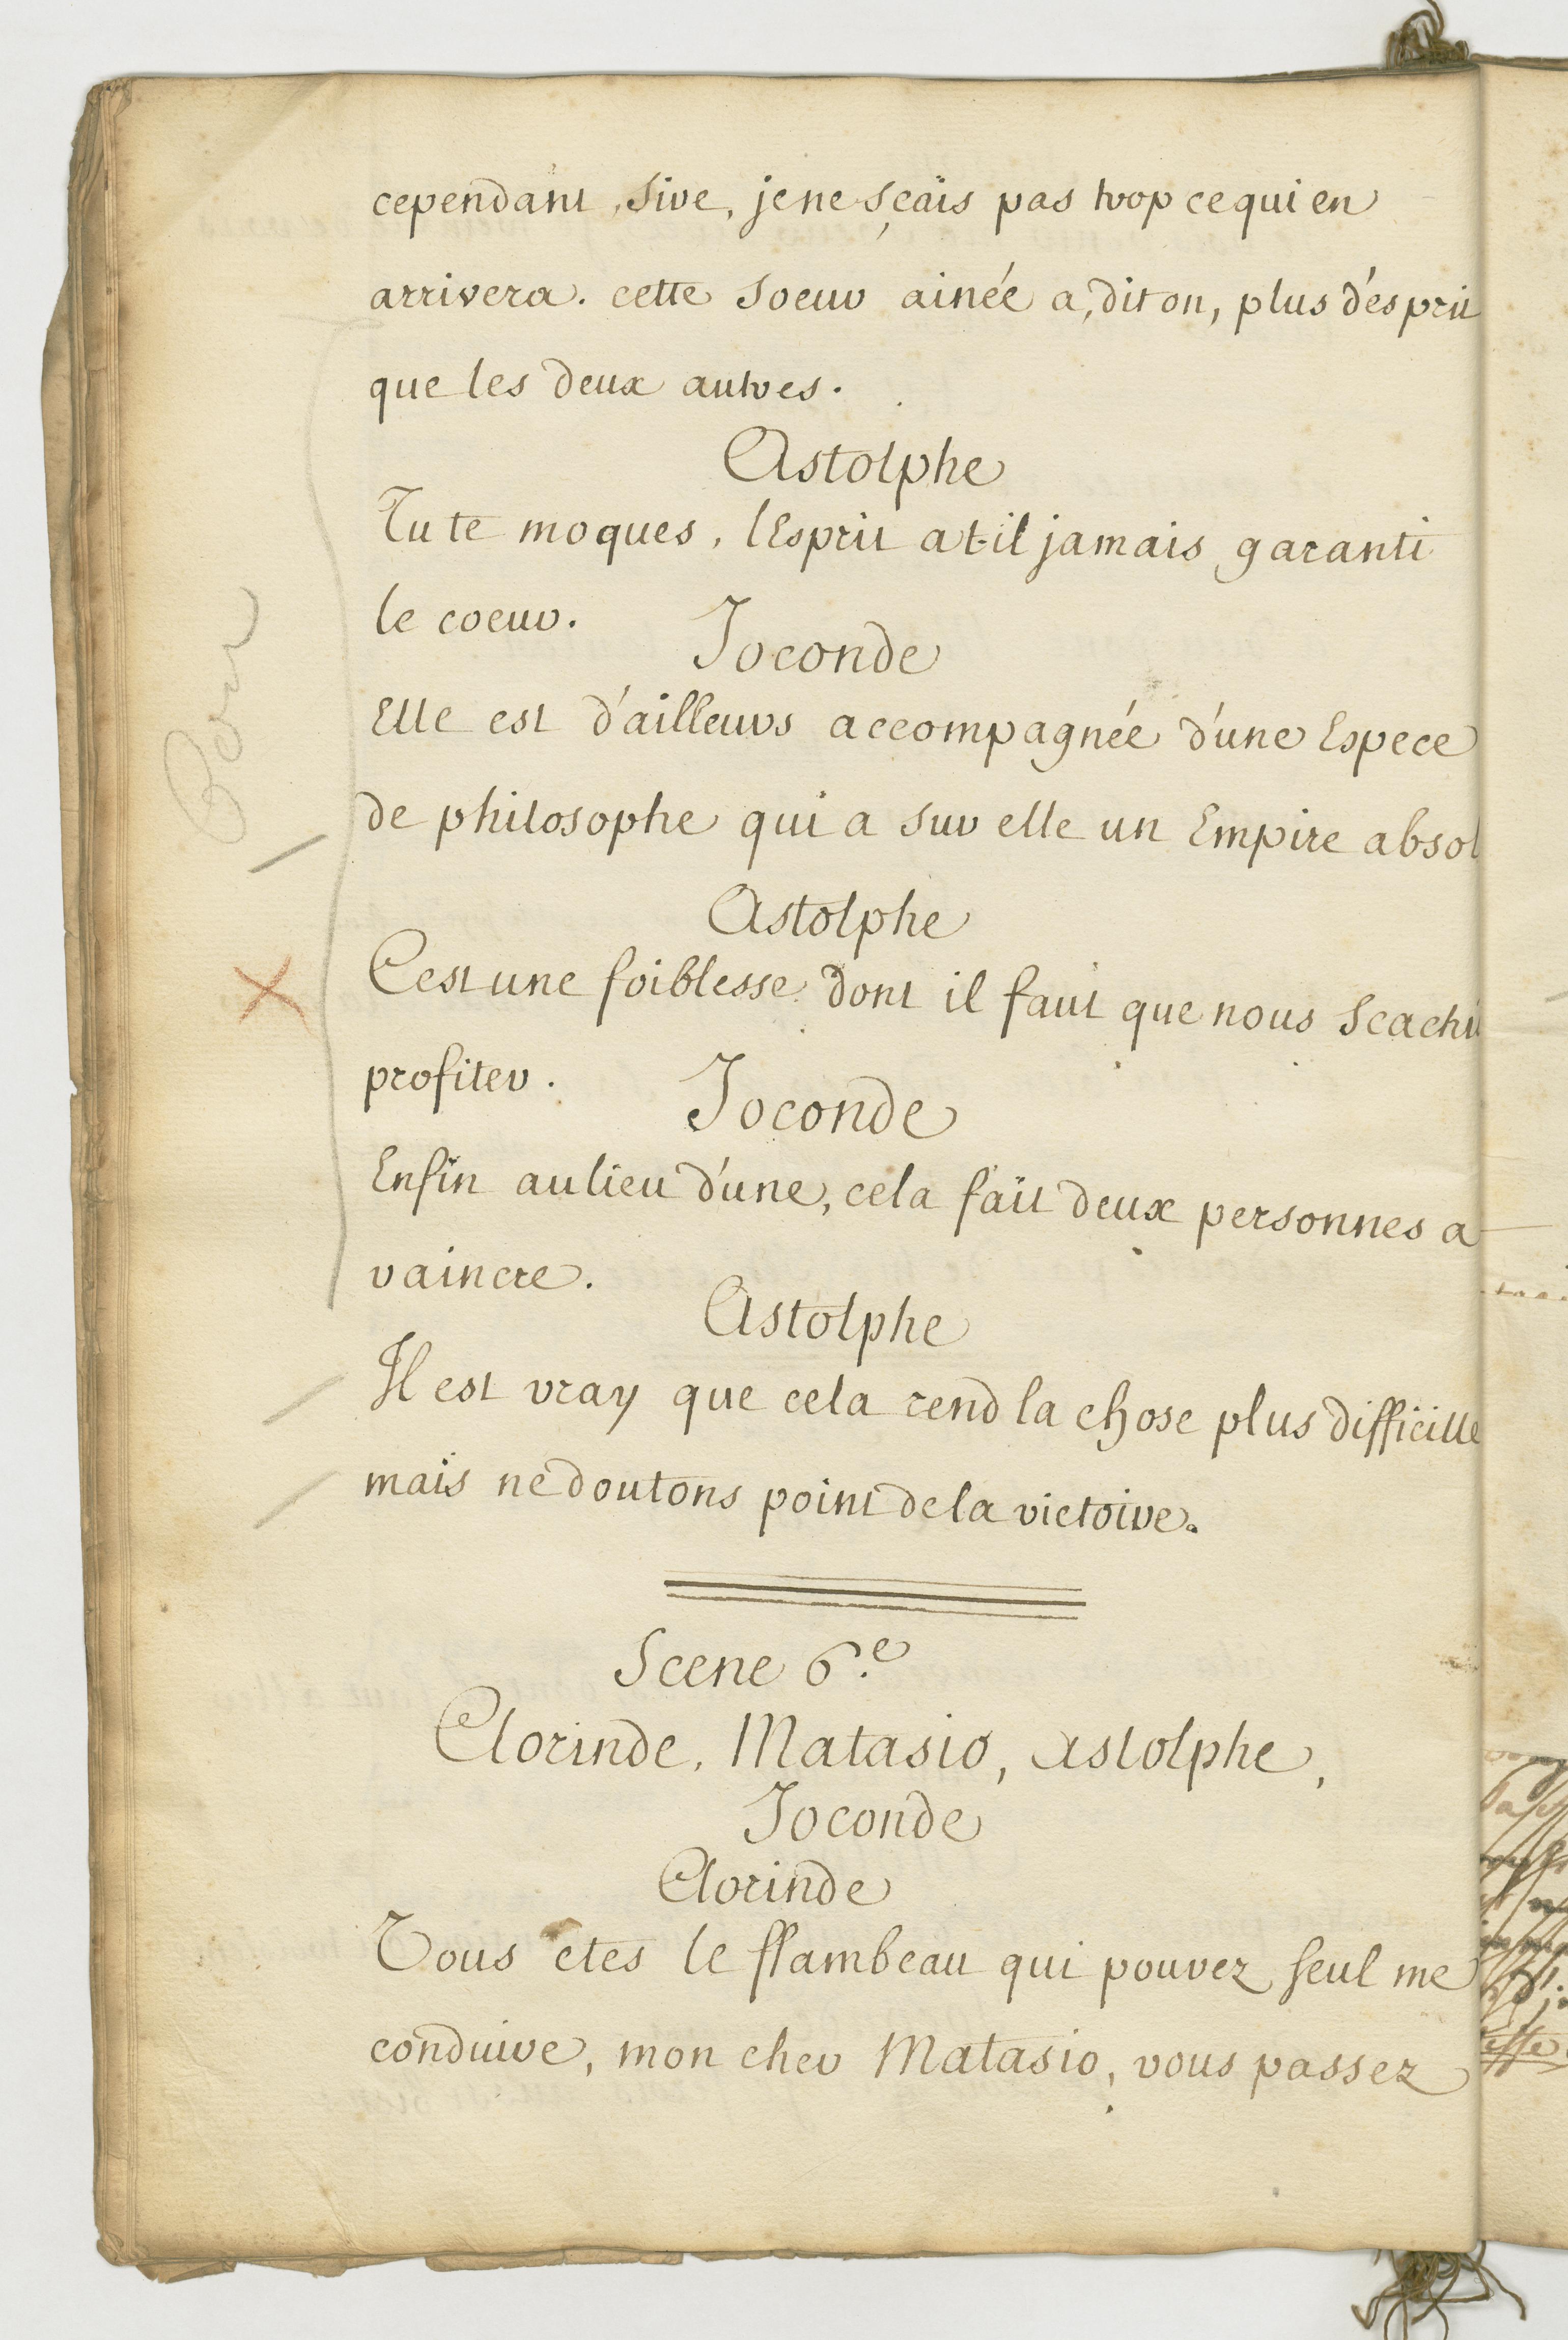 cependant, Sire, je ne sçais pas trop ce qui en
arrivera. cette soeur ainée a, dit on, plus d'esprit
que les deux autres.
Astolphe
Tu te moques, l'Esprit a t-il jamais garanti
le coeur.
Joconde
Elle est d'ailleurs accompagnée d'une Espece
de philosophe qui a sur elle un Empire absol
Astolphe
C'est une foiblesse dont il faut que nous scachi
profiter.
Joconde
Enfin au lieu d'une, cela fait deux personnes a
vaincre.
Astolphe
Il est vray que cela rend la chose plus difficille
mais ne doutons point de la victoire.
Scene 6.e
Clorinde, Matasio, astolphe,
Joconde
Clorinde
Vous etes le flambeau qui pouvez seul me
conduire, mon cher Matasio, vous passez